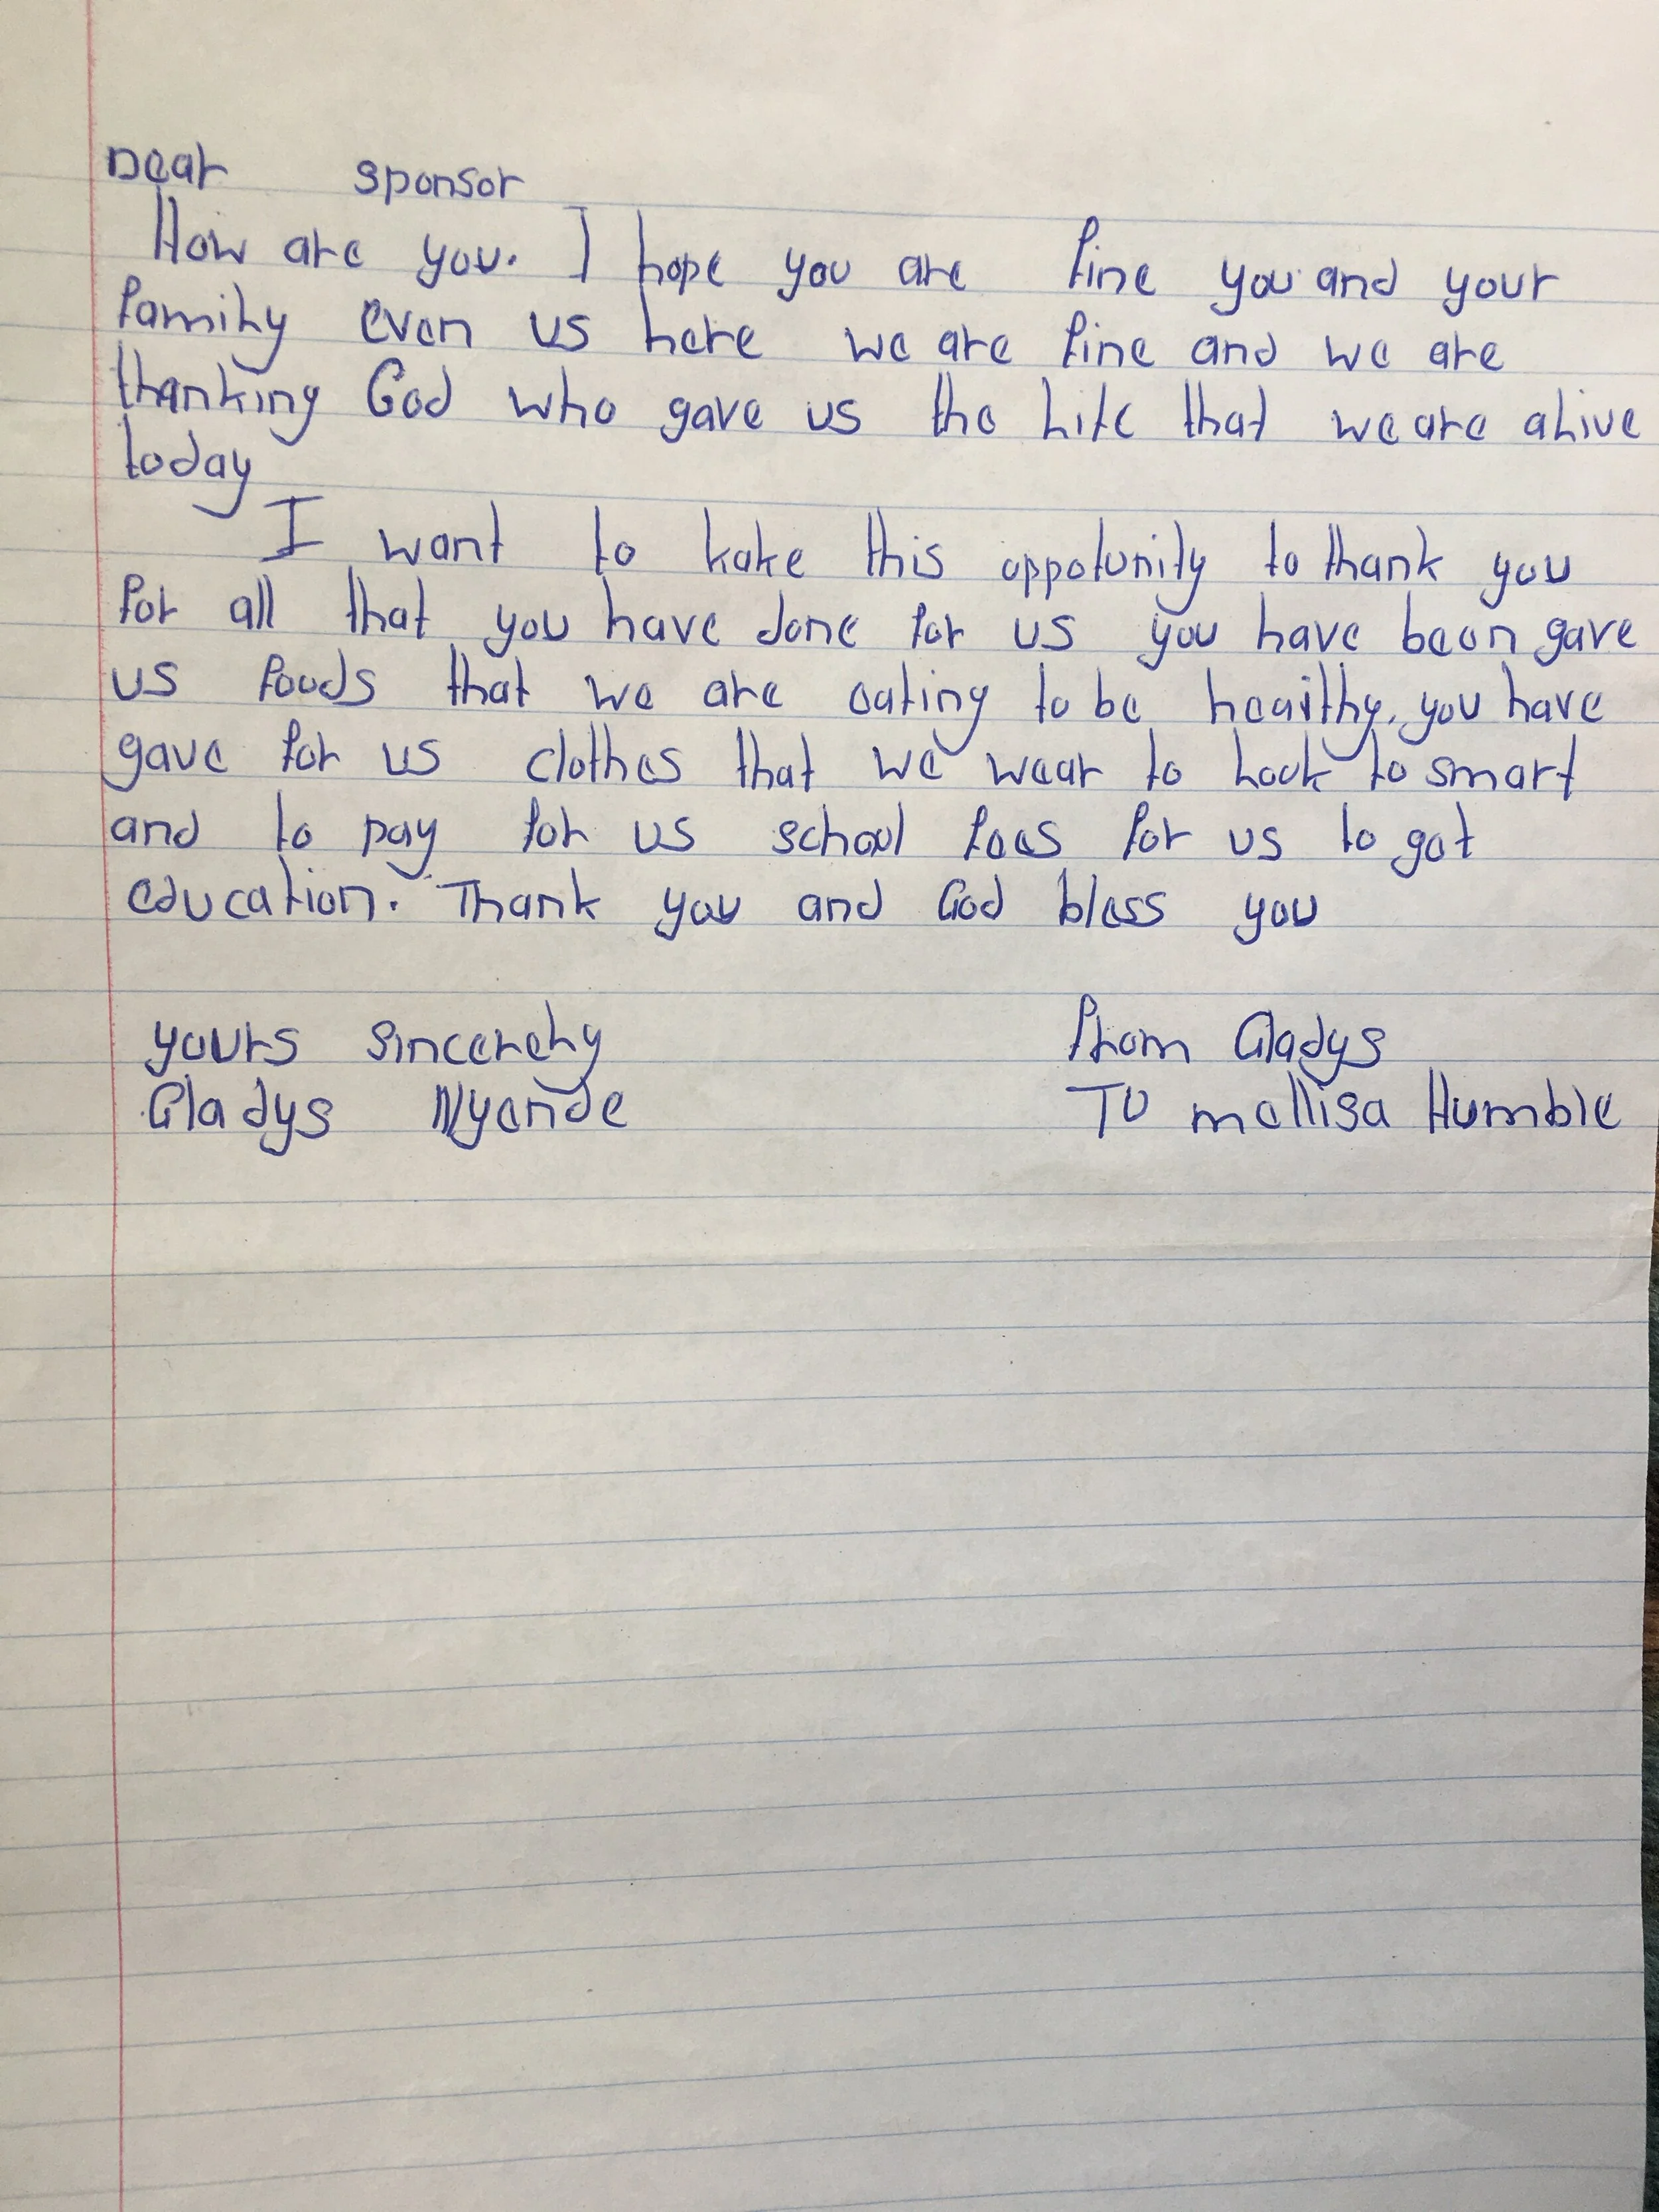 Dear sponsor
How are you. I hope you are fine you and your
family even us here we are fine and we are
thanking God who gave us the life that we are alive
today
I want to kake this oppotunity to thank you
for all that you have done for us you have been gave
us foods that we are eating to be heailthy, you have
gave for us clothes that we wear to look to smart
and to pay for us school fees for us to get
education. Thank you and God bless you
yours sincerely From Gladys
Gladys Nyende To mellisa Humble